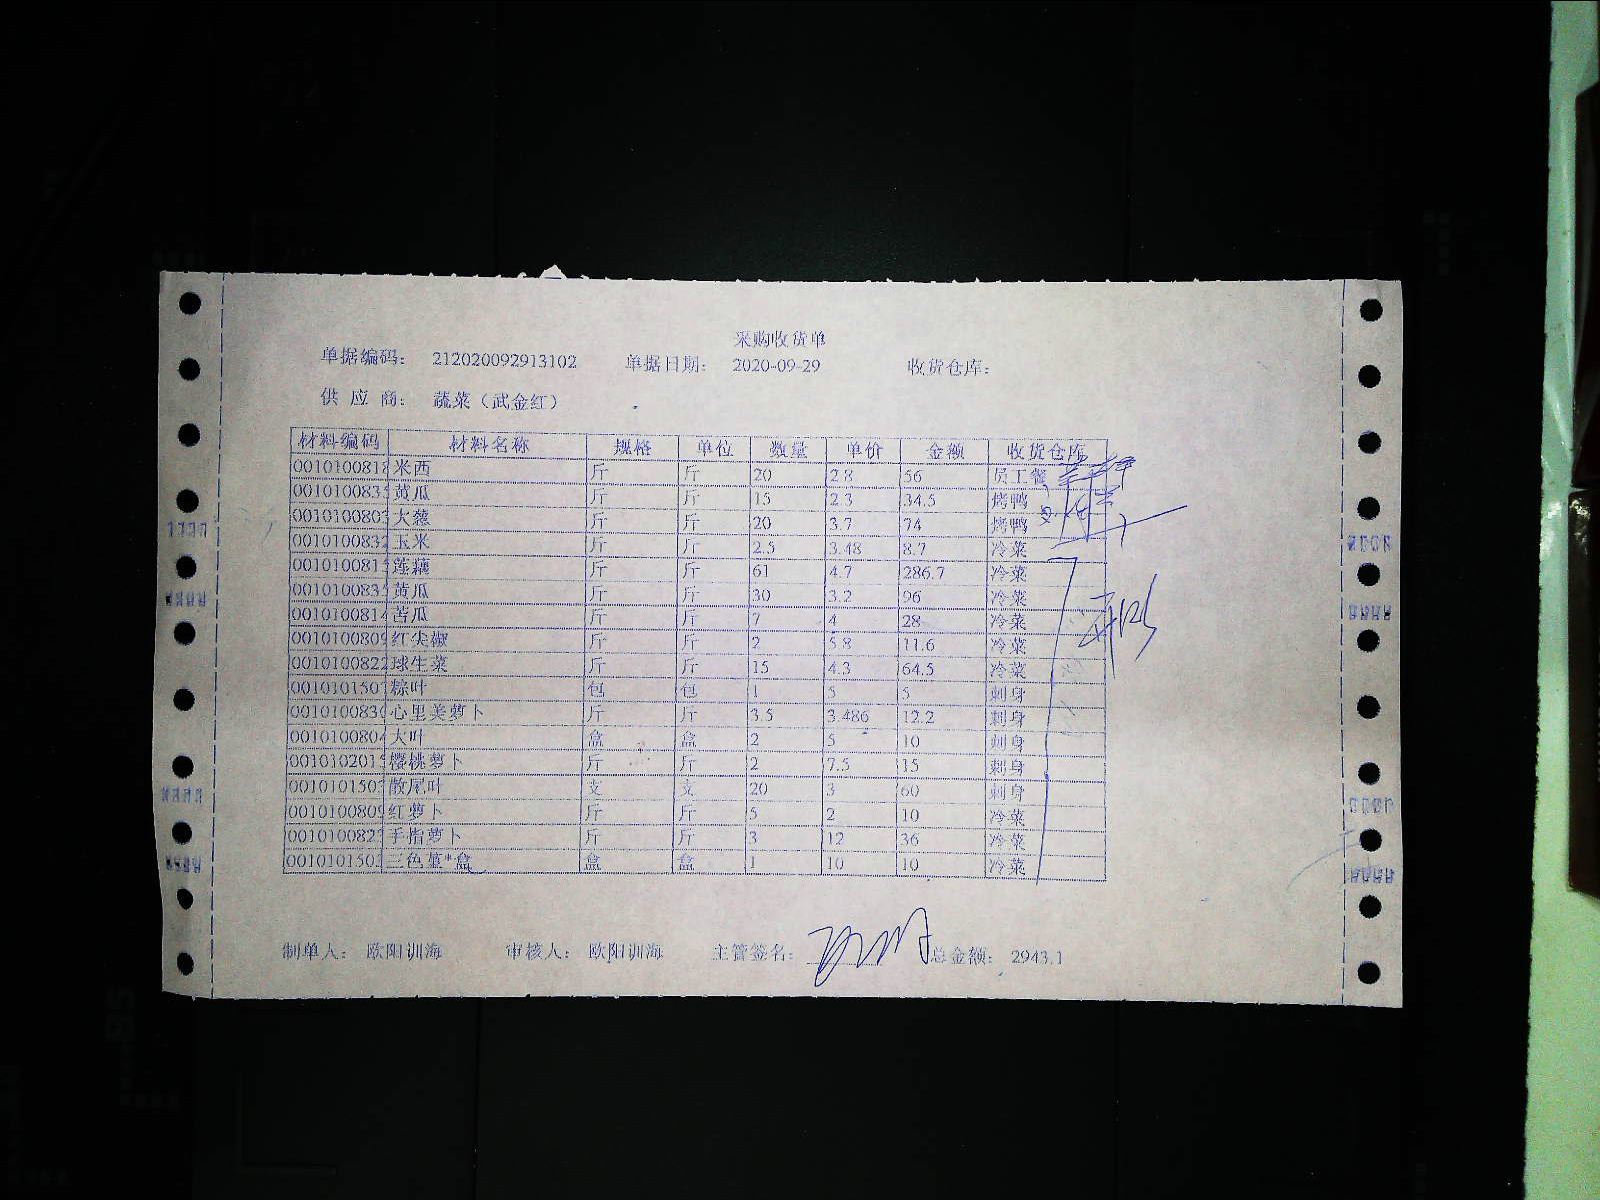 采购收货单
单据编码： 212020092913102 单据日期： 2020-09-29 收货仓库：
供 应 商： 蔬菜（武金红）
材料编码 材料名称 规格 单位 数量 单价 金额 收货仓库
0010100818 米西 斤 斤 20 2.8 56 员工餐
001010083 黄瓜 斤 斤 15 2.3 34.5 烤鸭
001010080 大葱 斤 斤 20 3.7 74 烤鸭
001010083 玉米 斤 斤 2.5 3.48 8.7 冷菜
001010081 莲藕 斤 斤 61 4.7 286.7 冷菜
001010083 黄瓜 斤 斤 30 3.2 96 冷菜
0010100814 苦瓜 斤 斤 7 4 28 冷菜
001010080 红尖椒 斤 斤 2 5.8 11.6 冷菜
0010100822 球生菜 斤 斤 15 4.3 64.5 冷菜
001010150 粽叶 包 包 1 5 5 刺身
001010083 心里美萝卜 斤 斤 3.5 3.486 12.2 刺身
0010100804 大叶 盒 盒 2 5 10 刺身
001010201 樱桃萝卜 斤 斤 2 7.5 15 刺身
001010150 散尾叶 支 支 20 3 60 刺身
001010080 红萝卜 斤 斤 5 2 10 冷菜
001010082 手指萝卜 斤 斤 3 12 36 冷菜
001010150 三色堇*盒 盒 盒 1 10 10 冷菜
制单人： 欧阳训海 审核人： 欧阳训海 主管签名： 总金额： 2943.1